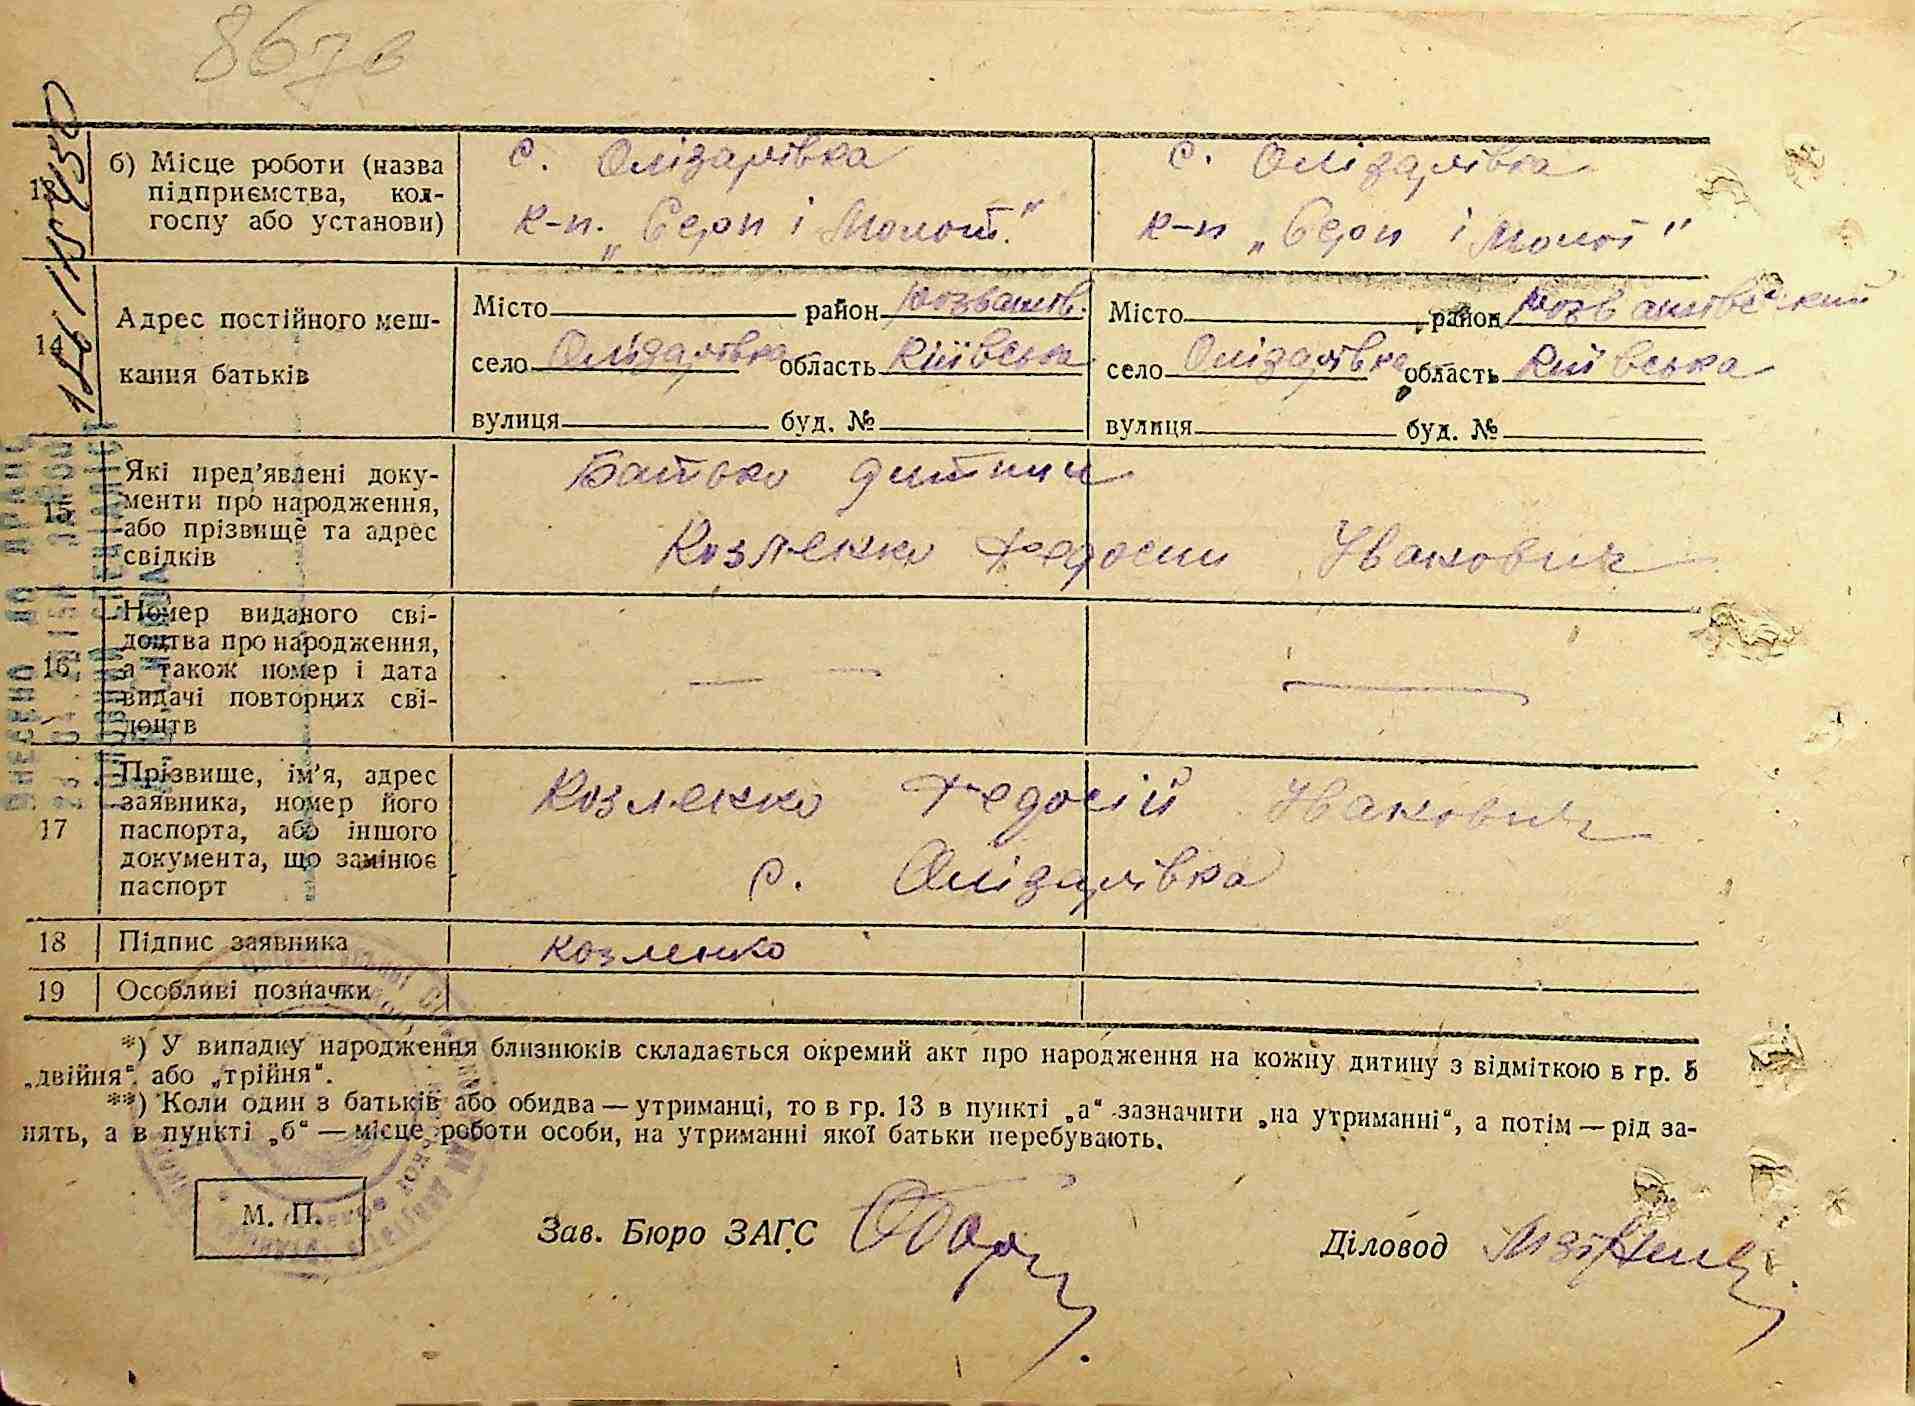 867 в
12611579430
13 б) Місце роботи (назва підприємства, колгоспу або установи)
с. Олізарівка с. Олізарівка
к-п. „Серп і Молот" к-п „Серп і Молот"
14 Адрес постійного мешкання батьків
Місто район Розважів. Місто район Розважівський
село Олізарівка область Київська село Олізарівка область Київська
вулиця буд. № вулиця буд. №
15 Які пред'явлені документи про народження, або прізвище та адрес свідків
Батько дитини
Козленко Федосии Іванович
16 Номер виданого свідоцтва про народження, а також номер і дата видачі повторних свідоцтв
— — —
17 Прізвище, ім'я, адрес заявника, номер його паспорта, або іншого документа, що замінює паспорт
Козленко Федосій Іванович
с. Олізарівка
18 Підпис заявника Козленко
19 Особливі позначки
*) У випадку народження близнюків складається окремий акт про народження на кожну дитину з відміткою в гр. 5
„двійня" або „трійня".
**) Коли один з батьків або обидва — утриманці, то в гр. 13 в пункті „а" зазначити „на утриманні", а потім — рід за-
нять, а в пункті „б" — місце роботи особи, на утриманні якої батьки перебувають.
М. П. Зав. Бюро ЗАГС Діловод